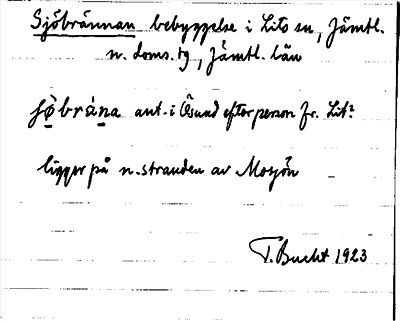 Sjöbrännan bebyggelse i Lits sn, Jämtl.
n. doms. tg, Jämtl. län
ant. i Åsund efter person fr. Lit?
ligger på n. stranden av Mosjön
T. Bucht 1923